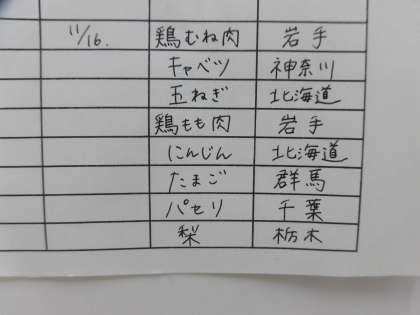 11/16. 鶏むね肉 岩手
キャベツ 神奈川
玉ねぎ 北海道
鶏もも肉 岩手
にんじん 北海道
たまご 群馬
パセリ 千葉
梨 栃木